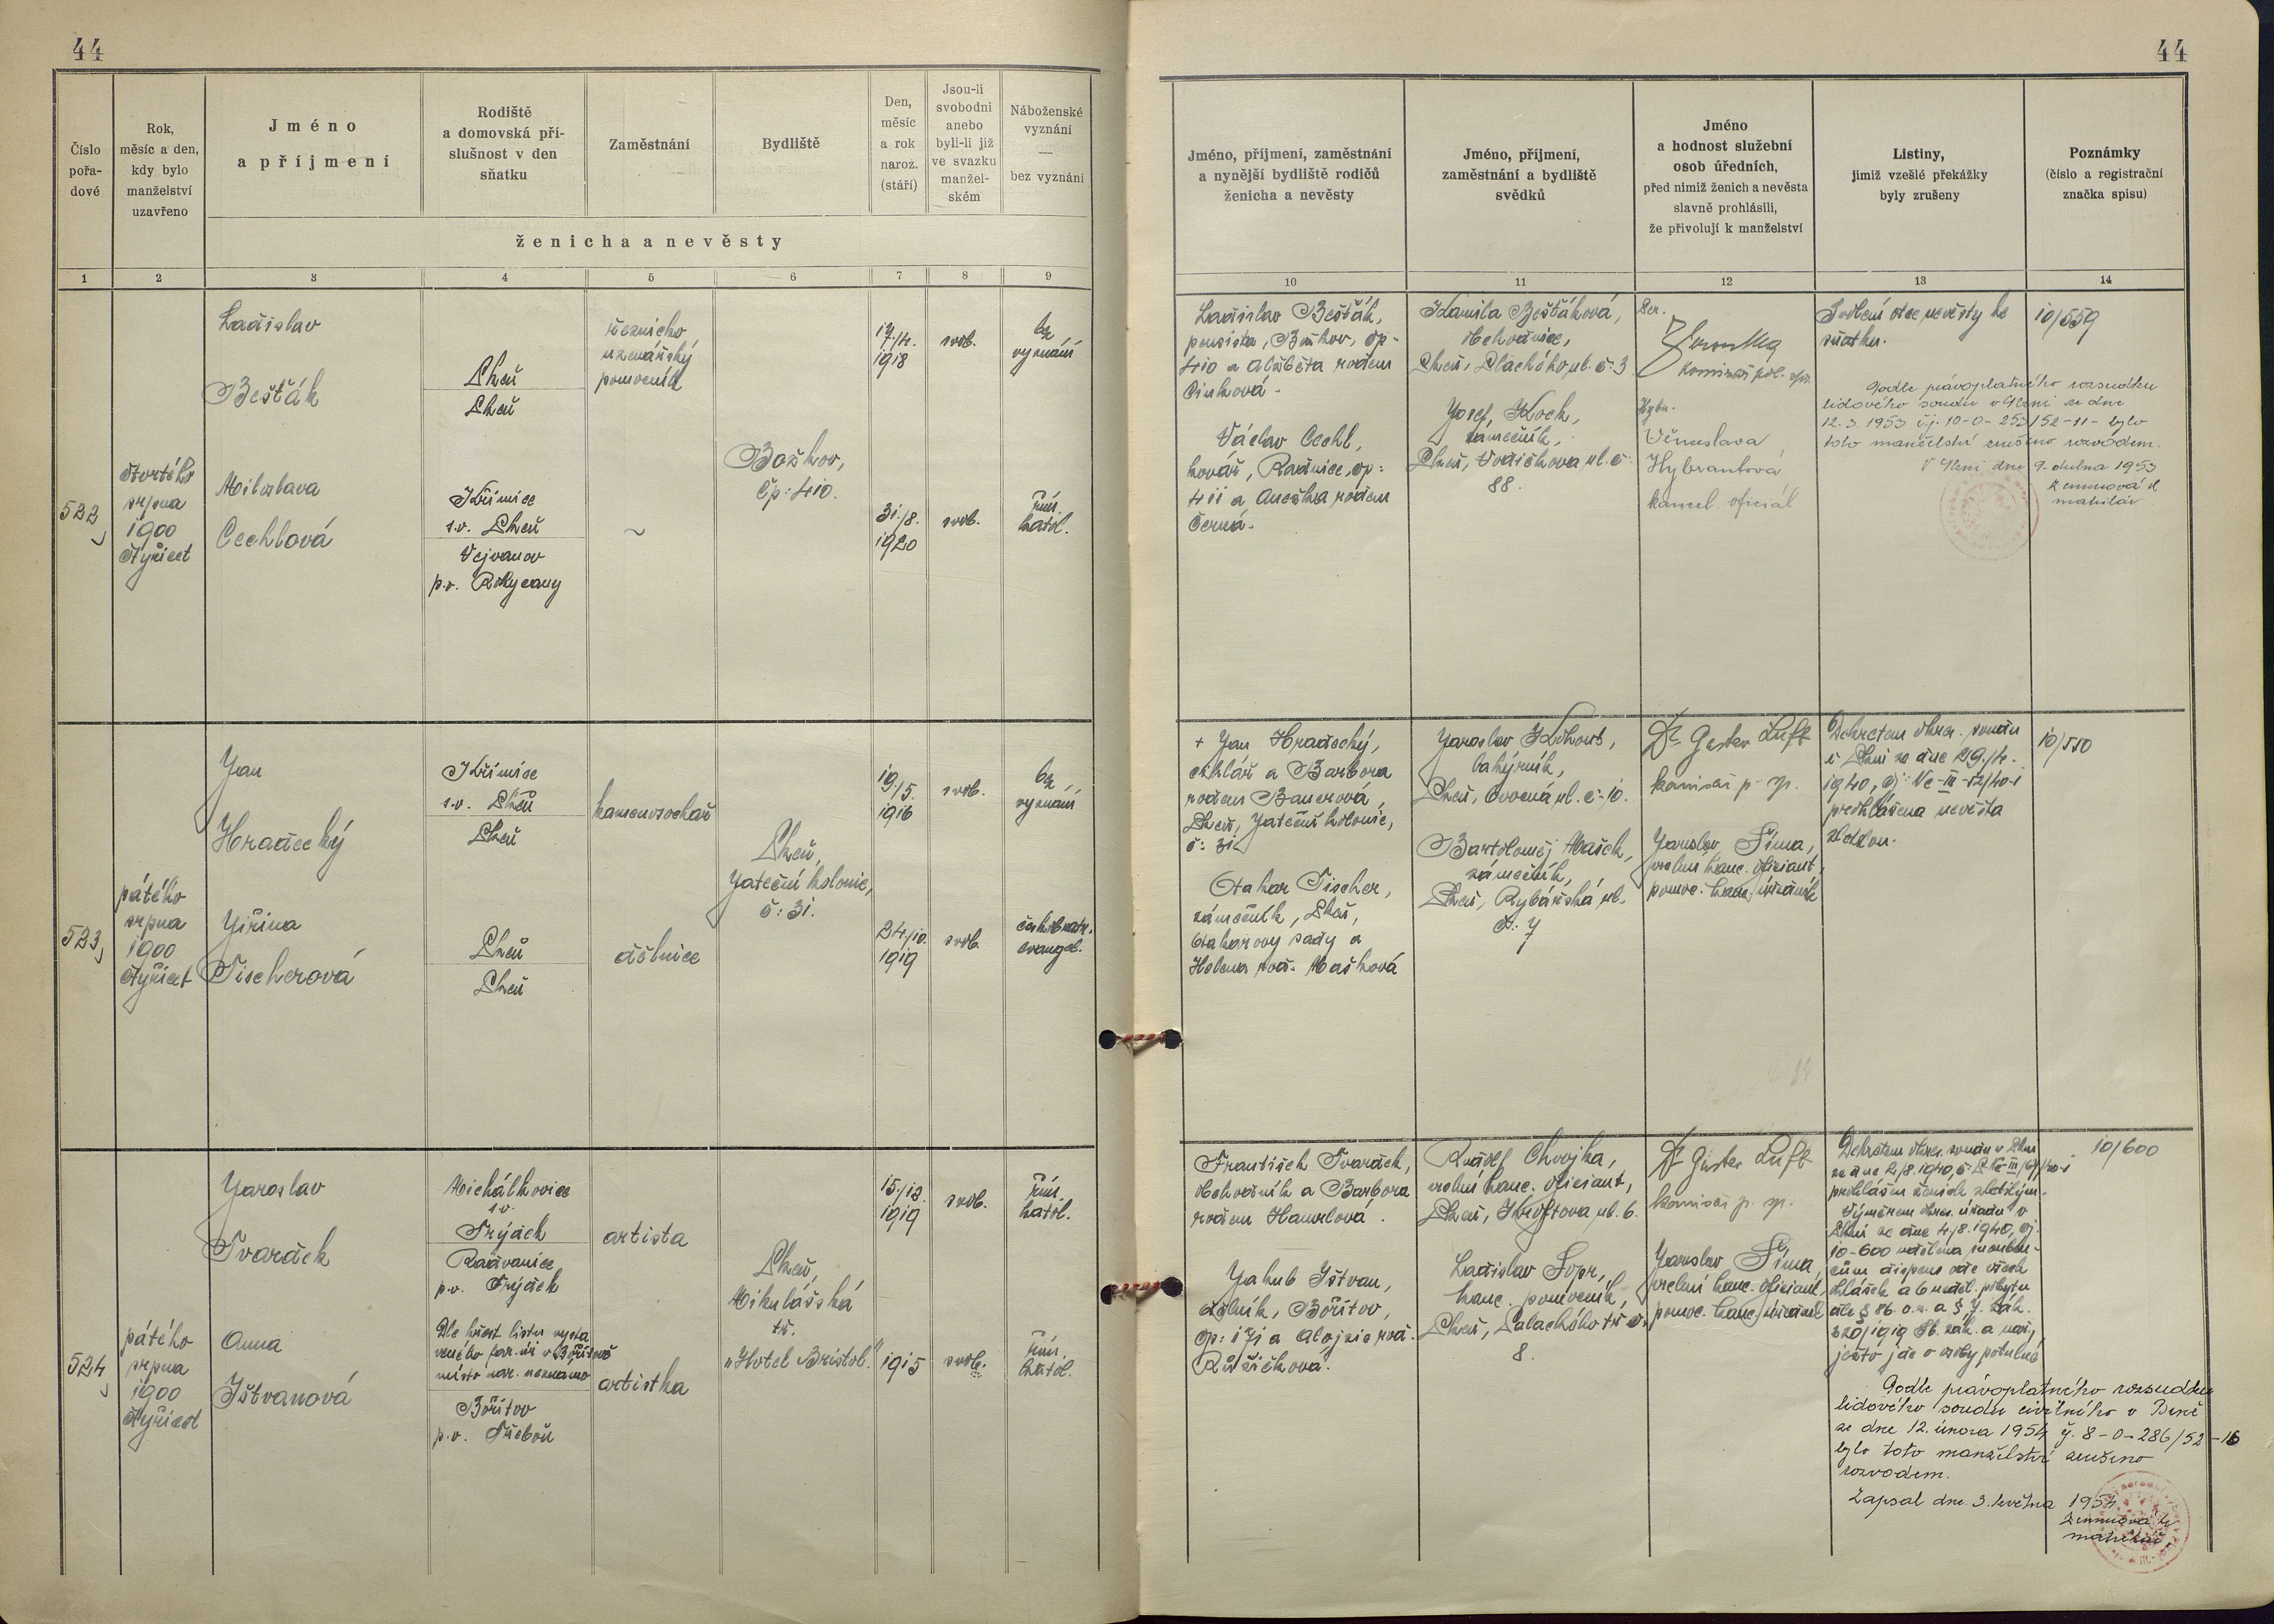 44
44
Číslo pořa-dové
Rok, měsíc a den, kdy bylo manželství uzavřeno
Jméno a příjmení
Rodiště a domovská pří-slušnost v den sňatku
Zaměstnání
Bydliště
Den, měsíc a rok naroz. (stáří)
Jsou-li svobodni anebo byli-li již ve svazku manžel-ském
Náboženské vyznání — bez vyznání
ženicha a nevěsty
Jméno, příjmení, zaměstnání a nynější bydliště rodičů ženicha a nevěsty
Jméno, příjmení, zaměstnání a bydliště svědků
Jméno a hodnost služební osob úředních, před nimiž ženich a nevěsta slavně prohlásili, že přivolují k manželství
Listiny, jimiž vzešlé překážky byly zrušeny
Poznámky (číslo a registrační značka spisu)
1 2 3 4 5 6 7 8 9
10 11 12 13 14
522
čtvrtého
srpna
1900
čtyřicet
Ladislav
Bešťák
Plzeň
Plzeň
řeznicko
uzenářský
pomocník
17./4.
1918
svob.
bez
vyznání
Miloslava
Cechlová
Křimice
s.o. Plzeň
Vejvanov
p.o. Rokycany
~
Božkov,
čp: 410.
31./8.
1920
svob.
řím.
katol.
Ladislav Bešťák,
pensista, Božkov, čp-
410 a Alžběta rodem
Václav Cechl,
kovář, Radnice, čp:
411 a Anežka rodem
Černá.
Kamila Bešťáková,
obchodnice,
Plzeň, Plachého ul. č: 3
Josef Koch,
zámečník,
Plzeň, Vodičkova ul. č:
88.
komisař pol. spr.
Hybr.
Věnceslava
Hybrantová
kancel. oficiál
Svolení otce nevěsty ke
sňatku.
Podle právoplatného rozsudku
lidového soudu v Plzni ze dne
12.3.1953 č.j. 10-0-253/52-11- bylo
toto manželství zrušeno rozvodem.
V Plzni dne 9. dubna 1953
10/559
523
pátého
srpna
1900
čtyřicet
Jan
Hradecký
Křimice
s.o. Plzeň
Plzeň
kamenosochař
19./5.
1916
svob.
bez
vyznání
Jiřina
Fischerová
Plzeň
Plzeň
dělnice
Plzeň,
Jateční kolonie,
č: 31.
24./10.
1919
svob.
českobratr.
evangel.
+ Jan Hradecký,
truhlář a Barbora
rodem Bauerová,
Plzeň, Jateční kolonie,
č: 31
Otakar Fischer,
zámečník, Plzeň,
Otakarovy sady a
Helena rod. Mašková
Plzeň, Ovocná ul. č: 10.
Bartoloměj Mašek,
zámečník,
Plzeň, Rybářská ul.
č: 7
Dr Gustav Luft
komisař p. sp.
Jaroslav Šíma,
Dekretem okres. soudu
v Plzni ze dne 29./4.
1940, čj: Nc-III-52/40-1
prohlášena nevěsta
zletilou.
10/550
524
pátého
srpna
1900
čtyřicet
Jaroslav
Tvardek
Michálkovice
s.o.
Frýdek
Radvanice
p.o. Frýdek
artista
15./12.
1919
svob.
řím.
katol.
Anna
Ištvanová
Dle křest. listu vysta
veného far. úř. v Bořitově
místo nar. neznámo
Bořitov
p.o. Třeboň
artistka
Plzeň,
Mikulášská
tř.
"Hotel Bristol."
1915
svob.
řím.
katol.
František Tvardek,
obchodník a Barbora
rodem Hamrlová.
Jakub Ištvan,
dělník, Bořitov,
čp: 171 a Alojzie rod.
Růžičková.
Rudolf Chvojka,
vrchní kanc. oficiant,
Plzeň, Kroftova ul. 6.
Ladislav Šopr,
kanc. pomocník,
Plzeň, Palackého tř. č:
8.
Dr Gustav Luft
komisař p. sp.
Jaroslav Šíma,
vrchní kanc. oficiant,
Dekretem okres. soudu v Plzni
prohlášen ženich zletilým.
Výměrem okres. úřadu v
Plzni ze dne 4./8. 1940, čj.
10-600 udělena snouben-
cům dispens ode všech
ohlášek a 6 neděl. pobytu
dle § 86 o.z. a § 7. zák.
320/1919 Sb. zák. a nař.,
ježto jde o osoby potulné
Podle právoplatného rozsudku
lidového soudu civilního v Brně
ze dne 12. února 1954 č.j. 8-0-286/52-16
bylo toto manželství zrušeno
rozvodem.
Zapsal dne 3. května 1954
matrikář
10/600